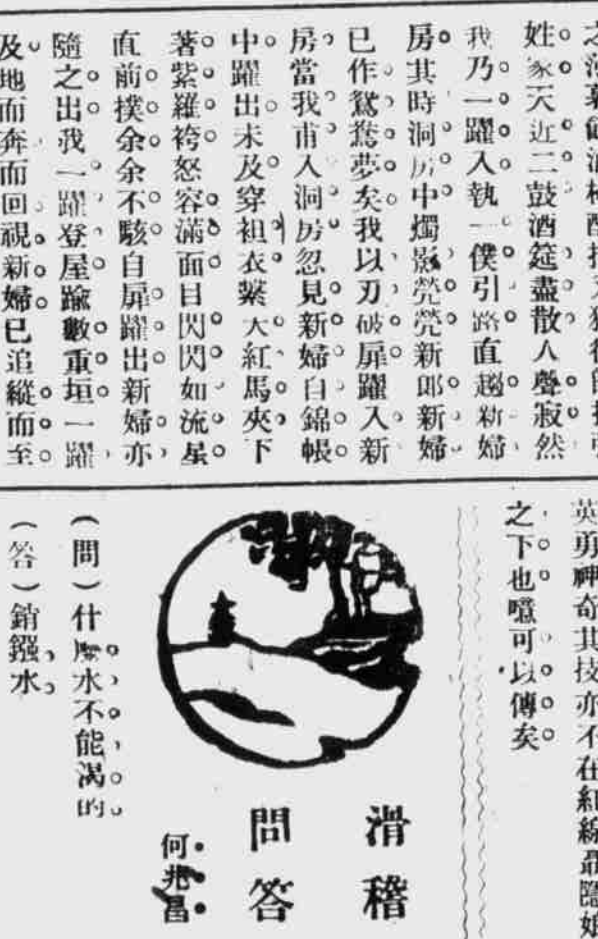 姓家天近二鼓酒筵盡散人聲寂然
我乃一躍入執一僕引路直趨新婦
房其時洞房中燭影煢煢新郎新婦
已作鴛鴦夢矣我以刃破扉躍入新
房當我甫入洞房忽見新婦自錦帳
中躍出未及穿袒衣繫大紅馬夾下
著紫羅袴怒容滿面目閃閃如流星
直前撲余余不駭自扉躍出新婦亦
隨之出我一躍登屋踰數重垣一躍
及地而奔而回視新婦已追縱而至
英勇神奇其技亦不在紅線聶隱娘
之下也噫可以傳矣
滑稽
問答
何兆昌
(問)什麼水不能渴的
(答)銷鏹水